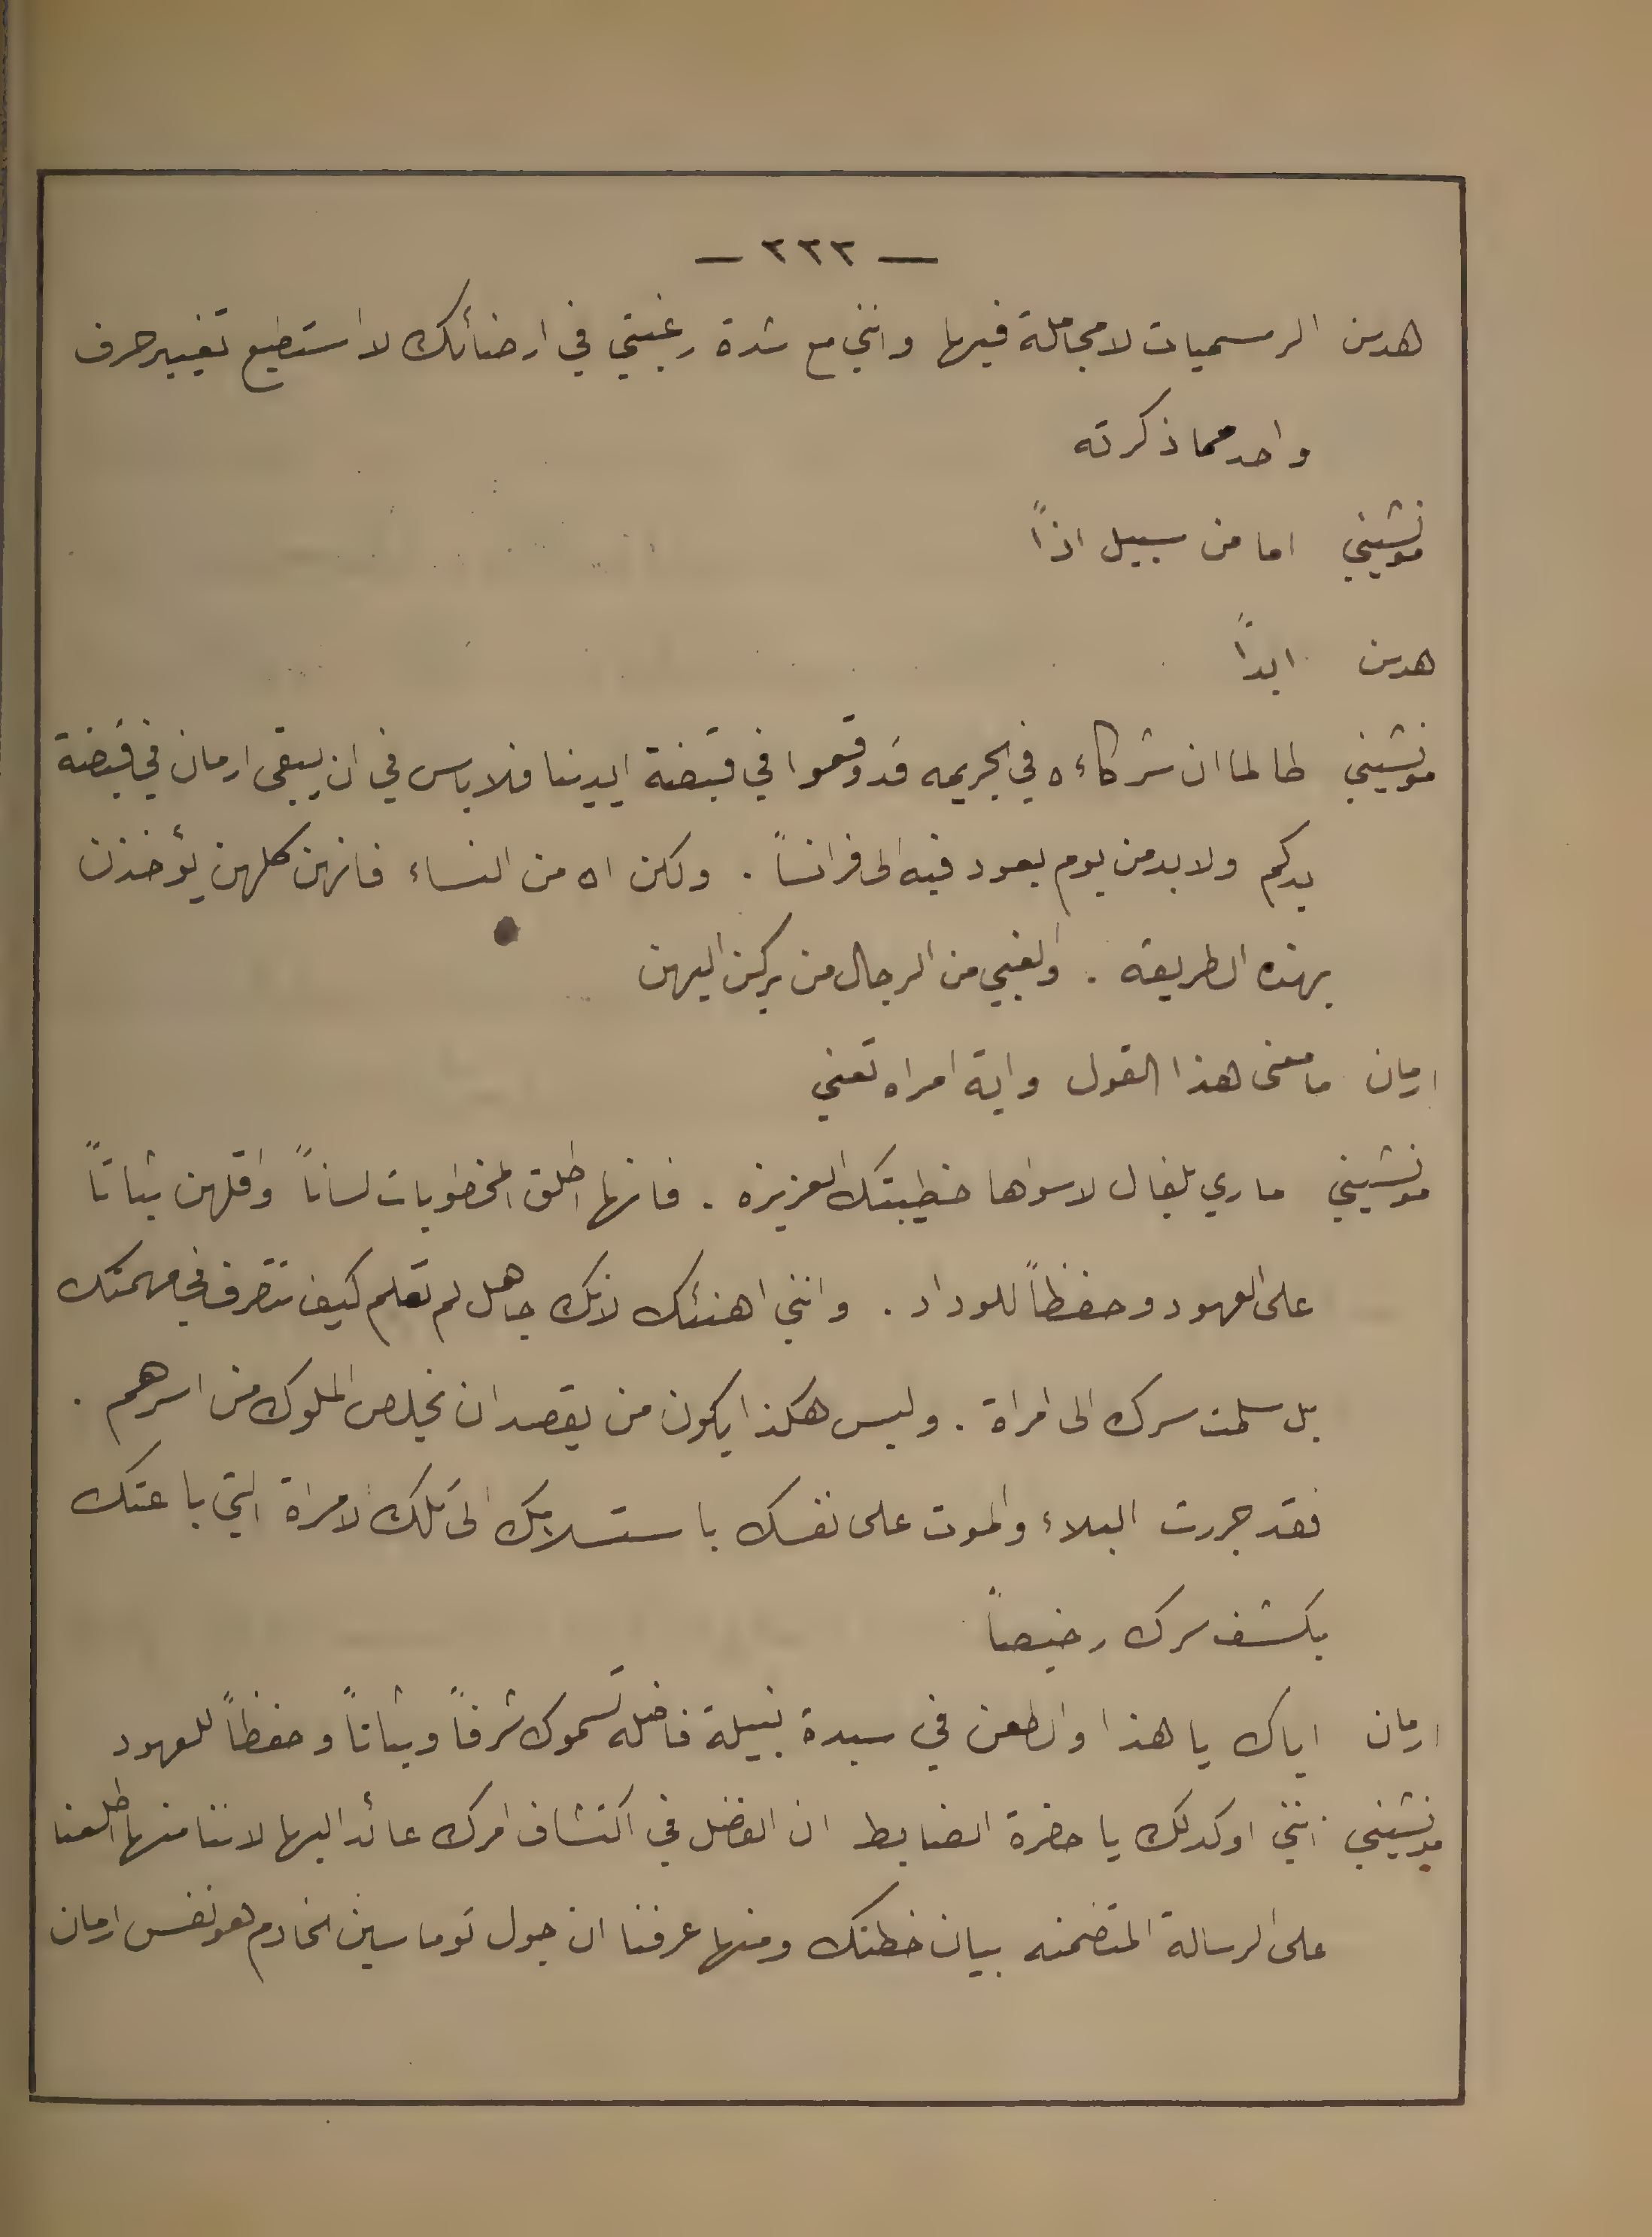 — ٢٢٢ —
هدسن الرسميات لا مجاملة فيها وانني مع شدة رغبتي في ارضائك لا استطيع تغيير حرف
واحد مما ذكرته
مونشيني اما من سبيل اذاً
هدسن ابداً
مونشيني طالما ان شركاءه في الجريمه قد وقعوا في قبضة ايدينا فلا باس في ان يبقى ارمان في قبضة
يدكم ولا بد من يوم يعود فيه الى فرانسا . ولكن اه من النساء فانهن كلهن يؤخذن
بهذه الطريقه . والغبي من الرجال من يركن اليهن
ارمان ما معنى هذا القول واية امراه تعني
مونشيني ماري بلغال لا سواها خطيبتك العزيزه . فانها اطلق المخطوبات لساناً واقلهن ثباتاً
على العهود وحفظاً للوداد . وانني اهنئك لانك جاهل لم تعلم كيف تتصرف في مهمتك
بل سلمت سرك الى امراة . وليس هكذا يكون من يقصد ان يخلص الملوك من اسرهم .
فقد جررت البلاء والموت على نفسك باستسلامك الى تلك الامراة التي باعتك
بكشف سرك رخيصاً
ارمان اياك يا هذا والطعن في سيدة نبيلة فاضله تسموك شرفاً وثباتاً وحفظاً للعهود
مونشيني انني اوكد لك يا حضرة الضابط ان الفضل في اكتشاف امرك عائد اليها لاننا منها اطلعنا
على الرسالة المتضمنه بيان خطتك ومنها عرفنا ان جول توماسين الخادم هو نفس ارمان